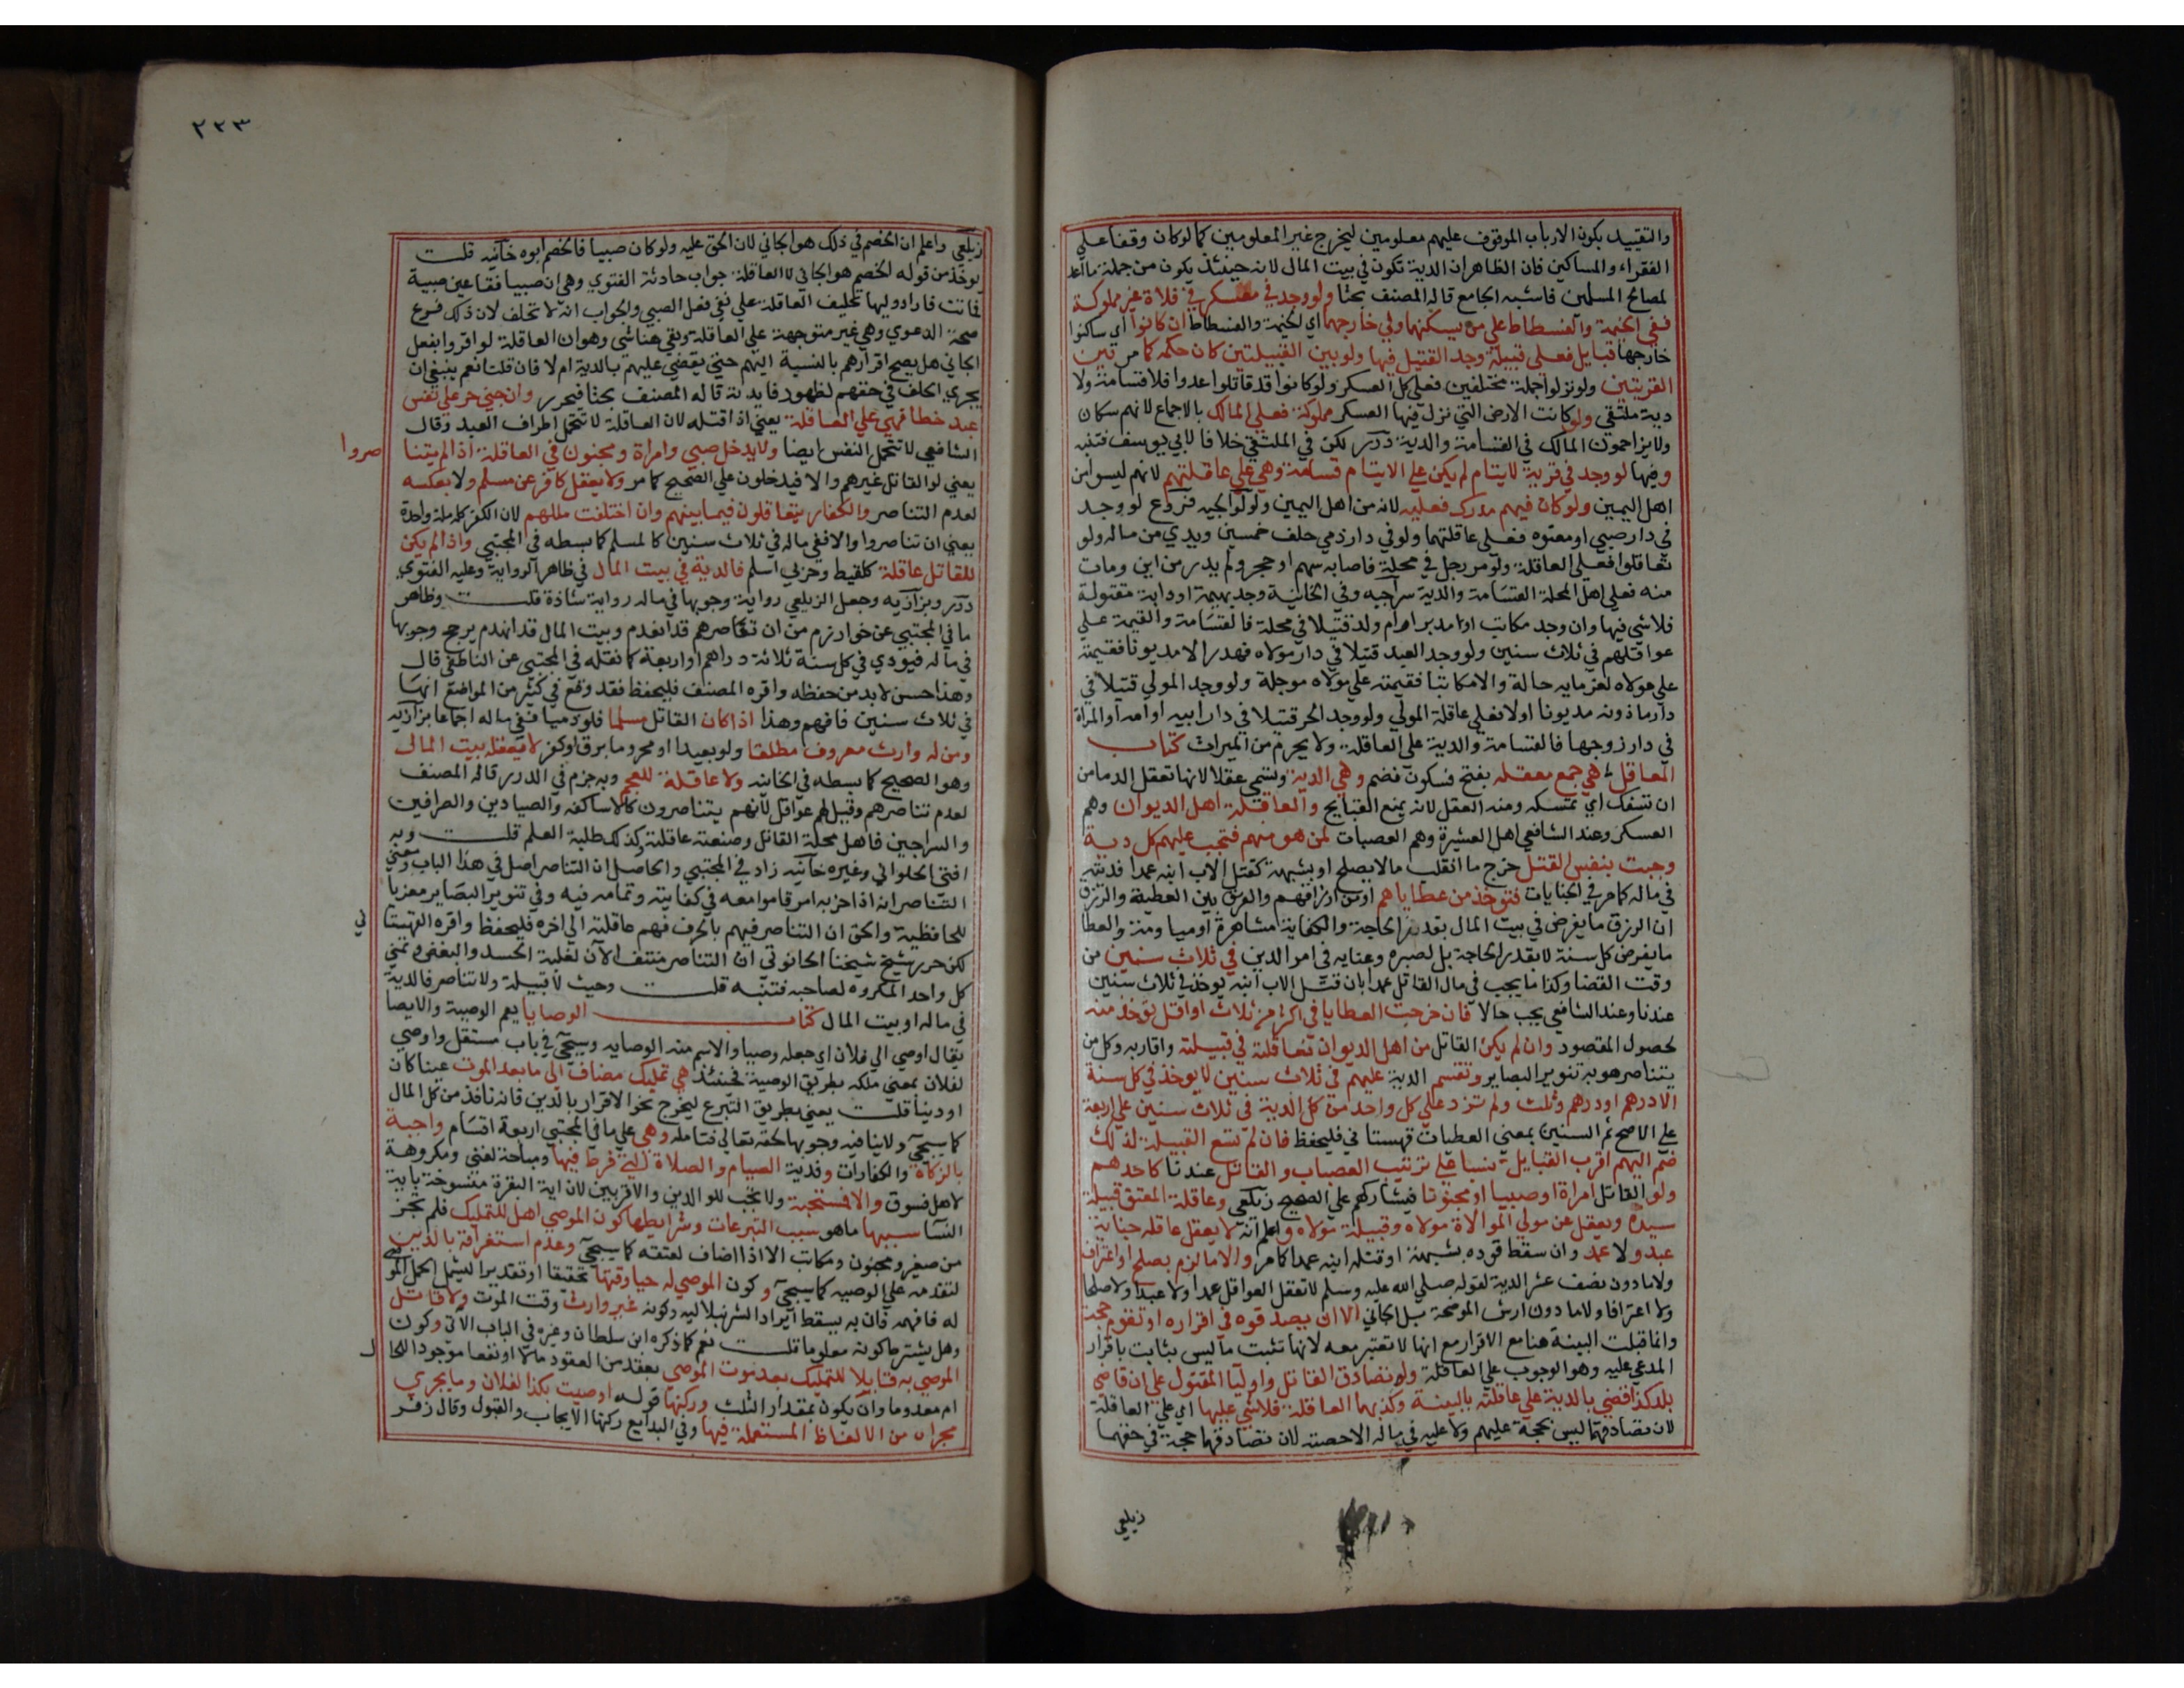 والتقييد بكون الارباب الموقوف عليهم معلومين ليخرج غير المعلومين كما لو كان وقفا على
الفقراء والمساكين فان الظاهر ان الدية تكون في بيت المال لانه حينئذ يكون من جملة ما اعد
لمصالح المسلمين فاشبه الجامع قاله المصنف بحثا ولو وجد في معسكر في فلاة غير مملوكة
ففي الخيمة والفسطاط على من يسكنهما وفي خارجهما اي الخيمة والفسطاط ان كانوا اي ساكنوا
خارجها قبايل فعلى قبيلة وجد القتيل فيها ولو بين القبيلتين كان حكمه كما مر بين
القريتين ولو نزلوا جملة مختلفين فعلى كل العسكر ولو كانوا قد قاتلوا عدوا فلا قسامة ولا
دية ملتقي ولو كانت الارض التي نزل فيها العسكر مملوكة فعلى المالك بالاجماع لانهم سكان
ولا يزاحمون المالك في القسامة والدية درر لكن في الملتقي خلافا لابي يوسف فتنبه
وفيها لو وجد في قرية لايتام لم يكن على الايتام قسامة وهي على عاقلتهم لانهم ليسوا من
اهل اليمين ولو كان فيهم مدرك فعليه لانه من اهل اليمين ولوالجيه فروع لو وجد
في دار صبي او معتوه فعلى عاقلتهما ولو في دار ذمي حلف خمسين ويدي من ماله ولو
تعاقلوا فعلى العاقلة ولو مر رجل في محلة فاصابه سهم او حجر ولم يدر من اين ومات
منه فعلى اهل المحلة القسامة والدية سراجيه وفي الخانية وجد بهيمة او دابة مقتولة
فلا شي فيها وان وجد مكاتب او مدبر او ام ولد قتيلا في محلة فالقسامة والقيمة على
عواقلهم في ثلاث سنين ولو وجد العبد قتيلا في دار مولاه فهدر الا مديونا فقيمته
على مولاه لغرمايه حالة والا مكاتبا فقيمته على مولاه موجلة ولو وجد المولى قتيلا في
دار ماذونه مديونا اولا فعلى عاقلة المولى ولو وجد الحر قتيلا في دار ابيه او امه او المراة
في دار زوجها فالقسامة والدية على العاقلة ولا يحرم من الميراث كتاب
المعاقل هي جمع معقله بفتح فسكون فضم وهي الدية وتسمى عقلا لانها تعقل الدما من
ان تسفك اي تمسكه ومنه العقل لانه يمنع القبايح والعاقلة اهل الديوان وهم
العسكر وعند الشافعي اهل العشيرة وهم العصبات لمن هو منهم فتجب عليهم كل دية
وجبت بنفس القتل خرج ما انقلب مالا بصلح او بشبهة كقتل الاب ابنه عمدا فديته
في ماله كما مر في الجنايات فتوخذ من عطاياهم او من ارزاقهم والفرق بين العطية والرزق
ان الرزق ما يفرض في بيت المال بقدر الحاجة والكفاية مشاهرة او مياومة والعطا
ما يفرض كل سنة لا بقدر الحاجة بل لصبره وعنايه في امر الدين في ثلاث سنين من
وقت القضا وكذا ما يجب في مال القاتل عمدا بان قتل الاب ابنه يوخذ في ثلاث سنين
عندنا وعند الشافعي يجب حالا فان خرجت العطايا في اكثر من ثلاث او اقل توخذ منه
لحصول المقصود وان لم يكن القاتل من اهل الديوان فعاقلته قبيلته واقاربه وكل من
يتناصر هو به تنوير البصاير وتقسم الدية عليهم في ثلاث سنين لا يوخذ في كل سنة
الا درهم او درهم وثلث ولم تزد على كل واحد من كل الدية في ثلاث سنين على اربعة
على الاصح ثم السنين بمعنى العطيات قهستاني فليحفظ فان لم تتسع القبيلة لذلك
ضم اليهم اقرب القبايل نسبا على ترتيب العصبات والقاتل عندنا كاحدهم
ولو القاتل امراة او صبيا او مجنونا فيشاركهم على الصحيح زيلعي وعاقلة المعتق قبيلة
سيده ويعقل عن مولي الموالاة مولاه وقبيلة مولاه واعلم انه لا يعقل عاقله جناية
عبد ولا عمد وان سقط قوده بشبهة او قتله ابنه عمدا كما مر ولا ما لزم بصلح او اعتراف
ولا ما دون نصف عشر الدية لقوله صلى الله عليه وسلم لا تعقل العواقل عمدا ولا عبدا ولا صلحا
ولا اعترافا ولا ما دون ارش الموضحة بل الجاني الا ان يصدقوه في اقراره او تقوم حجة
وانما قبلت البينة هنا مع الاقرار مع انها لا تعتبر معه لانها تثبت ما ليس بثابت باقرار
المدعي عليه وهو الوجوب على العاقلة ولو تصادق القاتل واوليا المقتول على ان قاضي
بلد كذا قضي بالدية على عاقلته بالبينة وكذبهما العاقلة فلا شي عليها اي على العاقلة
لان تصادقهما ليس بحجة عليهم ولا عليه في ماله الا حصته لان تصادقهما حجة في حقهما
زيلعي
٢٢٣
زيلعي واعلم ان الخصم في ذلك هو الجاني لان الحق عليه ولو كان صبيا فالخصم ابوه خانيه قلت
يوخذ من قوله الخصم هو الجاني لا العاقلة جواب حادثة الفتوي وهي ان صبيا فقا عين صبية
فماتت فاراد وليها تحليف العاقلة على نفي فعل الصبي والجواب انه لا تحلف لان ذلك فرع
صحة الدعوي وهي غير متوجهة على العاقلة وبقي هنا شي وهو ان العاقلة لو اقروا بفعل
الجاني هل يصح اقرارهم بالنسبة اليهم حتى يقضي عليهم بالدية ام لا فان قلنا نعم ينبغي ان
يجري الحلف في حقهم لظهور فايدته قاله المصنف بحثا فيحرر وان جني حر على نفس
عبد خطا فهي على العاقلة يعني اذا قتله لان العاقلة لا تتحمل اطراف العبد وقال
الشافعي لا تتحمل النفس ايضا ولا يدخل صبي وامراة ومجنون في العاقلة اذا لم يتنا
صروا
يعني لو القاتل غيرهم والا فيدخلون على الصحيح كما مر ولا يعقل كافر عن مسلم ولا بعكسه
لعدم التناصر والكفار يتعاقلون فيما بينهم وان اختلفت مللهم لان الكفر كله ملة واحدة
يعني ان تناصروا والا ففي ماله في ثلاث سنين كالمسلم كما بسطه في المجتبي واذا لم يكن
للقاتل عاقلة كلقيط وحربي اسلم فالدية في بيت المال في ظاهر الرواية وعليه الفتوي
درر وبزازيه وجعل الزيلعي رواية وجوبها في ماله رواية شاذة قلت وظاهر
ما في المجتبي عن خوارزم من ان تناصرهم قد انعدم وبيت المال قد انهدم يرجح وجوبها
في ماله فيودي في كل سنة ثلاثة دراهم او اربعة كما نقله في المجتبي عن الناطفي قال
وهذا حسن لا بد من حفظه واقره المصنف فليحفظ فقد وقع في كثير من المواضع انها
في ثلاث سنين فافهم وهذا اذا كان القاتل مسلما فلو ذميا ففي ماله اجماعا بزازيه
ومن له وارث معروف مطلقا ولو بعيدا او محروما برق او كفر لا يعقله بيت المال
وهو الصحيح كما بسطه في الخانيه ولا عاقلة للعجم وبه جزم في الدرر قاله المصنف
لعدم تناصرهم وقيل لهم عواقل لانهم يتناصرون كالاساكفه والصيادين والصرافين
والسراجين فاهل محلة القاتل وصنعته عاقلته وكذلك طلبة العلم قلت وبه
افتى الحلواني وغيره خانيه زاد في المجتبي والحاصل ان التناصر اصل في هذا الباب ومعني
التناصر انه اذا حز به امر قاموا معه في كفايته وتمامه فيه وفي تنوير البصاير معزيا
للحافظية والحق ان التناصر فيهم بالحرف فهم عاقلته الى اخره فليحفظ واقره القهستا
ني
لكن حرر شيخ شيخنا الحانوتي ان التناصر منتف الآن لغلبة الحسد والبغض وتمني
كل واحد المكروه لصاحبه فتنبه قلت وحيث لا قبيلة ولا تناصر فالدية
في ماله او بيت المال كتاب الوصايا يعم الوصية والايصا
يقال اوصي الى فلان اي جعله وصيا والاسم منه الوصايه وسيجي في باب مستقل واوصي
لفلان بمعنى ملكه بطريق الوصية فحينئذ هي تمليك مضاف الى ما بعد الموت عينا كان
او دينا قلت يعني بطريق التبرع ليخرج نحو الاقرار بالدين فانه نافذ من كل المال
كما سيجي ولا ينافيه وجوبها لحقه تعالى فتامله وهي على ما في المجتبي اربعة اقسام واجبة
بالزكاة والكفارات وفدية الصيام والصلاة التي فرط فيها ومباحة لغني ومكروهة
لاهل فسوق والا فمستحبة ولا يجب للوالدين والاقربين لان اية البقرة منسوخة باية
النسا سببها ما هو سبب التبرعات وشرايطها كون الموصي اهل للتمليك فلم تجز
من صغير ومجنون ومكاتب الا اذا اضاف لعتقه كما سيجي وعدم استغراقه بالدين
لتقدمه على الوصيه كما سيجي وكون الموصي له حيا وقتها تحقيقا او تقديرا ليشمل الحمل الموصي
له فافهمه فان به يسقط ايراد الشرنبلاليه وكونه غير وارث وقت الموت ولا قاتل
وهل يشترط كونه معلوما قلت نعم كما ذكره ابن سلطان وغيره في الباب الآتي وكون
الموصي به قابلا للتمليك بعد موت الموصي بعقد من العقود مالا او نفعا موجودا للحا
ل
ام معدوما وان يكون بمقدار الثلث وركنها قوله اوصيت بكذا لفلان وما يجري
مجراه من الالفاظ المستعملة فيها وفي البدايع ركنها الايجاب والقبول وقال زفر